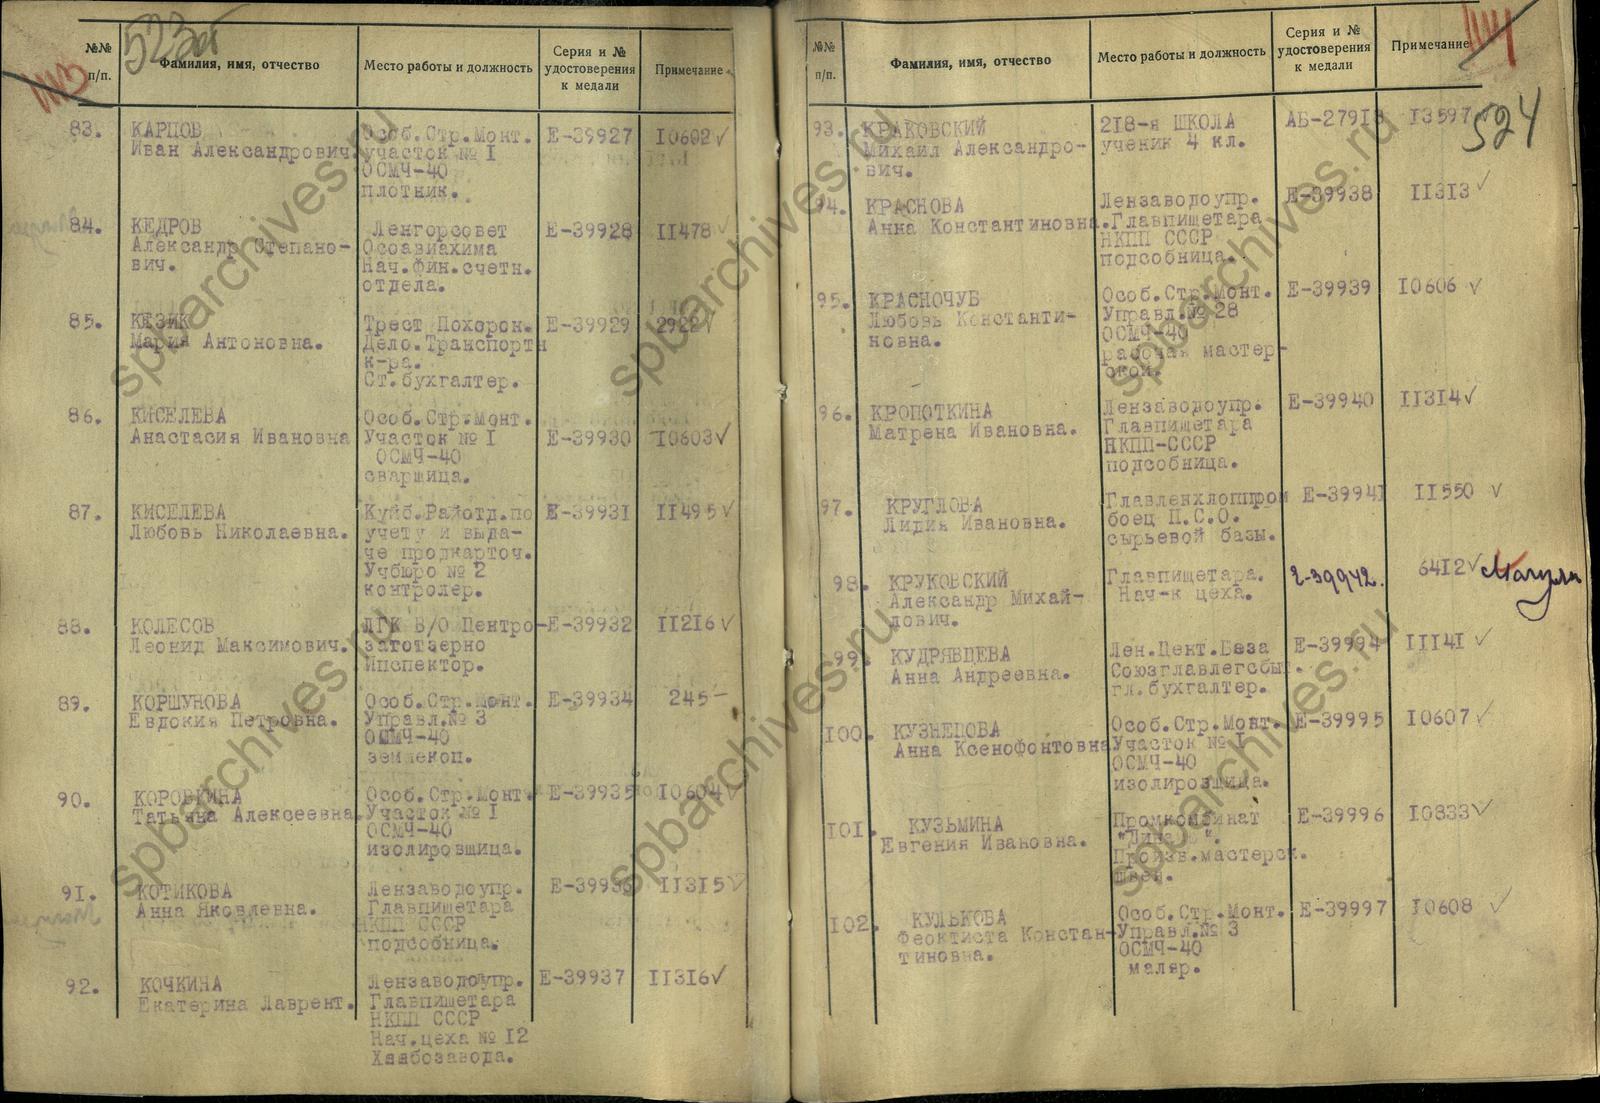 523об
№№ п/п.
Фамилия, имя, отчество
Место работы и должность
Серия и № удостоверения к медали
Примечание
83. КАРПОВ Особ.Стр.Монт. Е-39927 10602 ✓
Иван Александрович. участок № I
ОСМЧ-40
плотник.
84. КЕДРОВ Ленгорсовет Е-39928 II478 ✓
Александр Степано- Осоавиахима
вич. Нач.фин.счетн.
отдела.
85. КЕЗИК Трест Похорон. Е-39929 2922 ✓
Мария Антоновна. Дело.Транспортн
к-ра.
Ст.бухгалтер.
86. КИСЕЛЕВА Особ.Стр.Монт.
Анастасия Ивановна Участок № I Е-39930 I0603 ✓
ОСМЧ-40
сварщица.
87. КИСЕЛЕВА Куйб.Райотд.по Е-39931 II495 ✓
Любовь Николаевна. учету и выда-
че продкарточ.
Учбюро № 2
контролер.
88. КОЛЕСОВ ЛГК В/О Центро- Е-39932 II2I6 ✓
Леонид Максимович. заготзерно
Инспектор.
89. КОРШУНОВА Особ.Стр.Монт. Е-39934 245 –
Евдокия Петровна. Управл.№ 3
ОСМЧ-40
землекоп.
90. КОРОВКИНА Особ.Стр.Монт. Е-39935 I0604 ✓
Татьяна Алексеевна. Участок № I
ОСМЧ-40
изолировщица.
91. КОТИКОВА Лензаводоупр. Е-39936 II3I5 ✓
Анна Яковлевна. Главпищетара
НКПП СССР
подсобница.
92. КОЧКИНА Лензаводоупр. Е-39937 II3I6 ✓
Екатерина Лаврент. Главпищетара
НКПП СССР
Нач.цеха № I2
Хлебозавода.
524
№№ п/п.
Фамилия, имя, отчество
Место работы и должность
Серия и № удостоверения к медали
Примечание
93. КРАКОВСКИЙ 2I8-я ШКОЛА АБ-279I8 I3597
Михаил Александро- ученик 4 кл.
вич.
94. КРАСНОВА Лензаводоупр. Е-39938 II3I3 ✓
Анна Константиновна. Главпищетара
НКПП СССР
подсобница.
95. КРАСНОЧУБ Особ.Стр.Монт. Е-39939 I0606 ✓
Любовь Константи- Управл.№ 28
новна. ОСМЧ-40
рабочая мастер-
ской.
96. КРОПОТКИНА Лензаводоупр. Е-39940 II3I4 ✓
Матрена Ивановна. Главпищетара
НКПП-СССР
подсобница.
97. КРУГЛОВА Главленхлоппром Е-3994I II550 ✓
Лидия Ивановна. боец П.С.О.
сырьевой базы.
98. КРУКОВСКИЙ Главпищетара. Е-39942. 64I2 ✓
Александр Михай- Нач-к цеха.
лович.
99. КУДРЯВЦЕВА Лен.Цент.База Е-39994 III4I ✓
Анна Андреевна. Союзглавлегсбыт.
гл.бухгалтер.
I00. КУЗНЕЦОВА Особ.Стр.Монт. Е-39995 I0607 ✓
Анна Ксенофонтовна Участок № I
ОСМЧ-40
изолировщица.
I0I. КУЗЬМИНА Промкомбинат Е-39996 I0833 ✓
Евгения Ивановна.
Произв.мастерск.
швея.
I02. КУЛЬКОВА Особ.Стр.Монт. Е-39997 I0608 ✓
Феоктиста Констан- Управл.№ 3
тиновна. ОСМЧ-40
маляр.
spbarchives.ru
spbarchives.ru
spbarchives.ru
spbarchives.ru
spbarchives.ru
spbarchives.ru